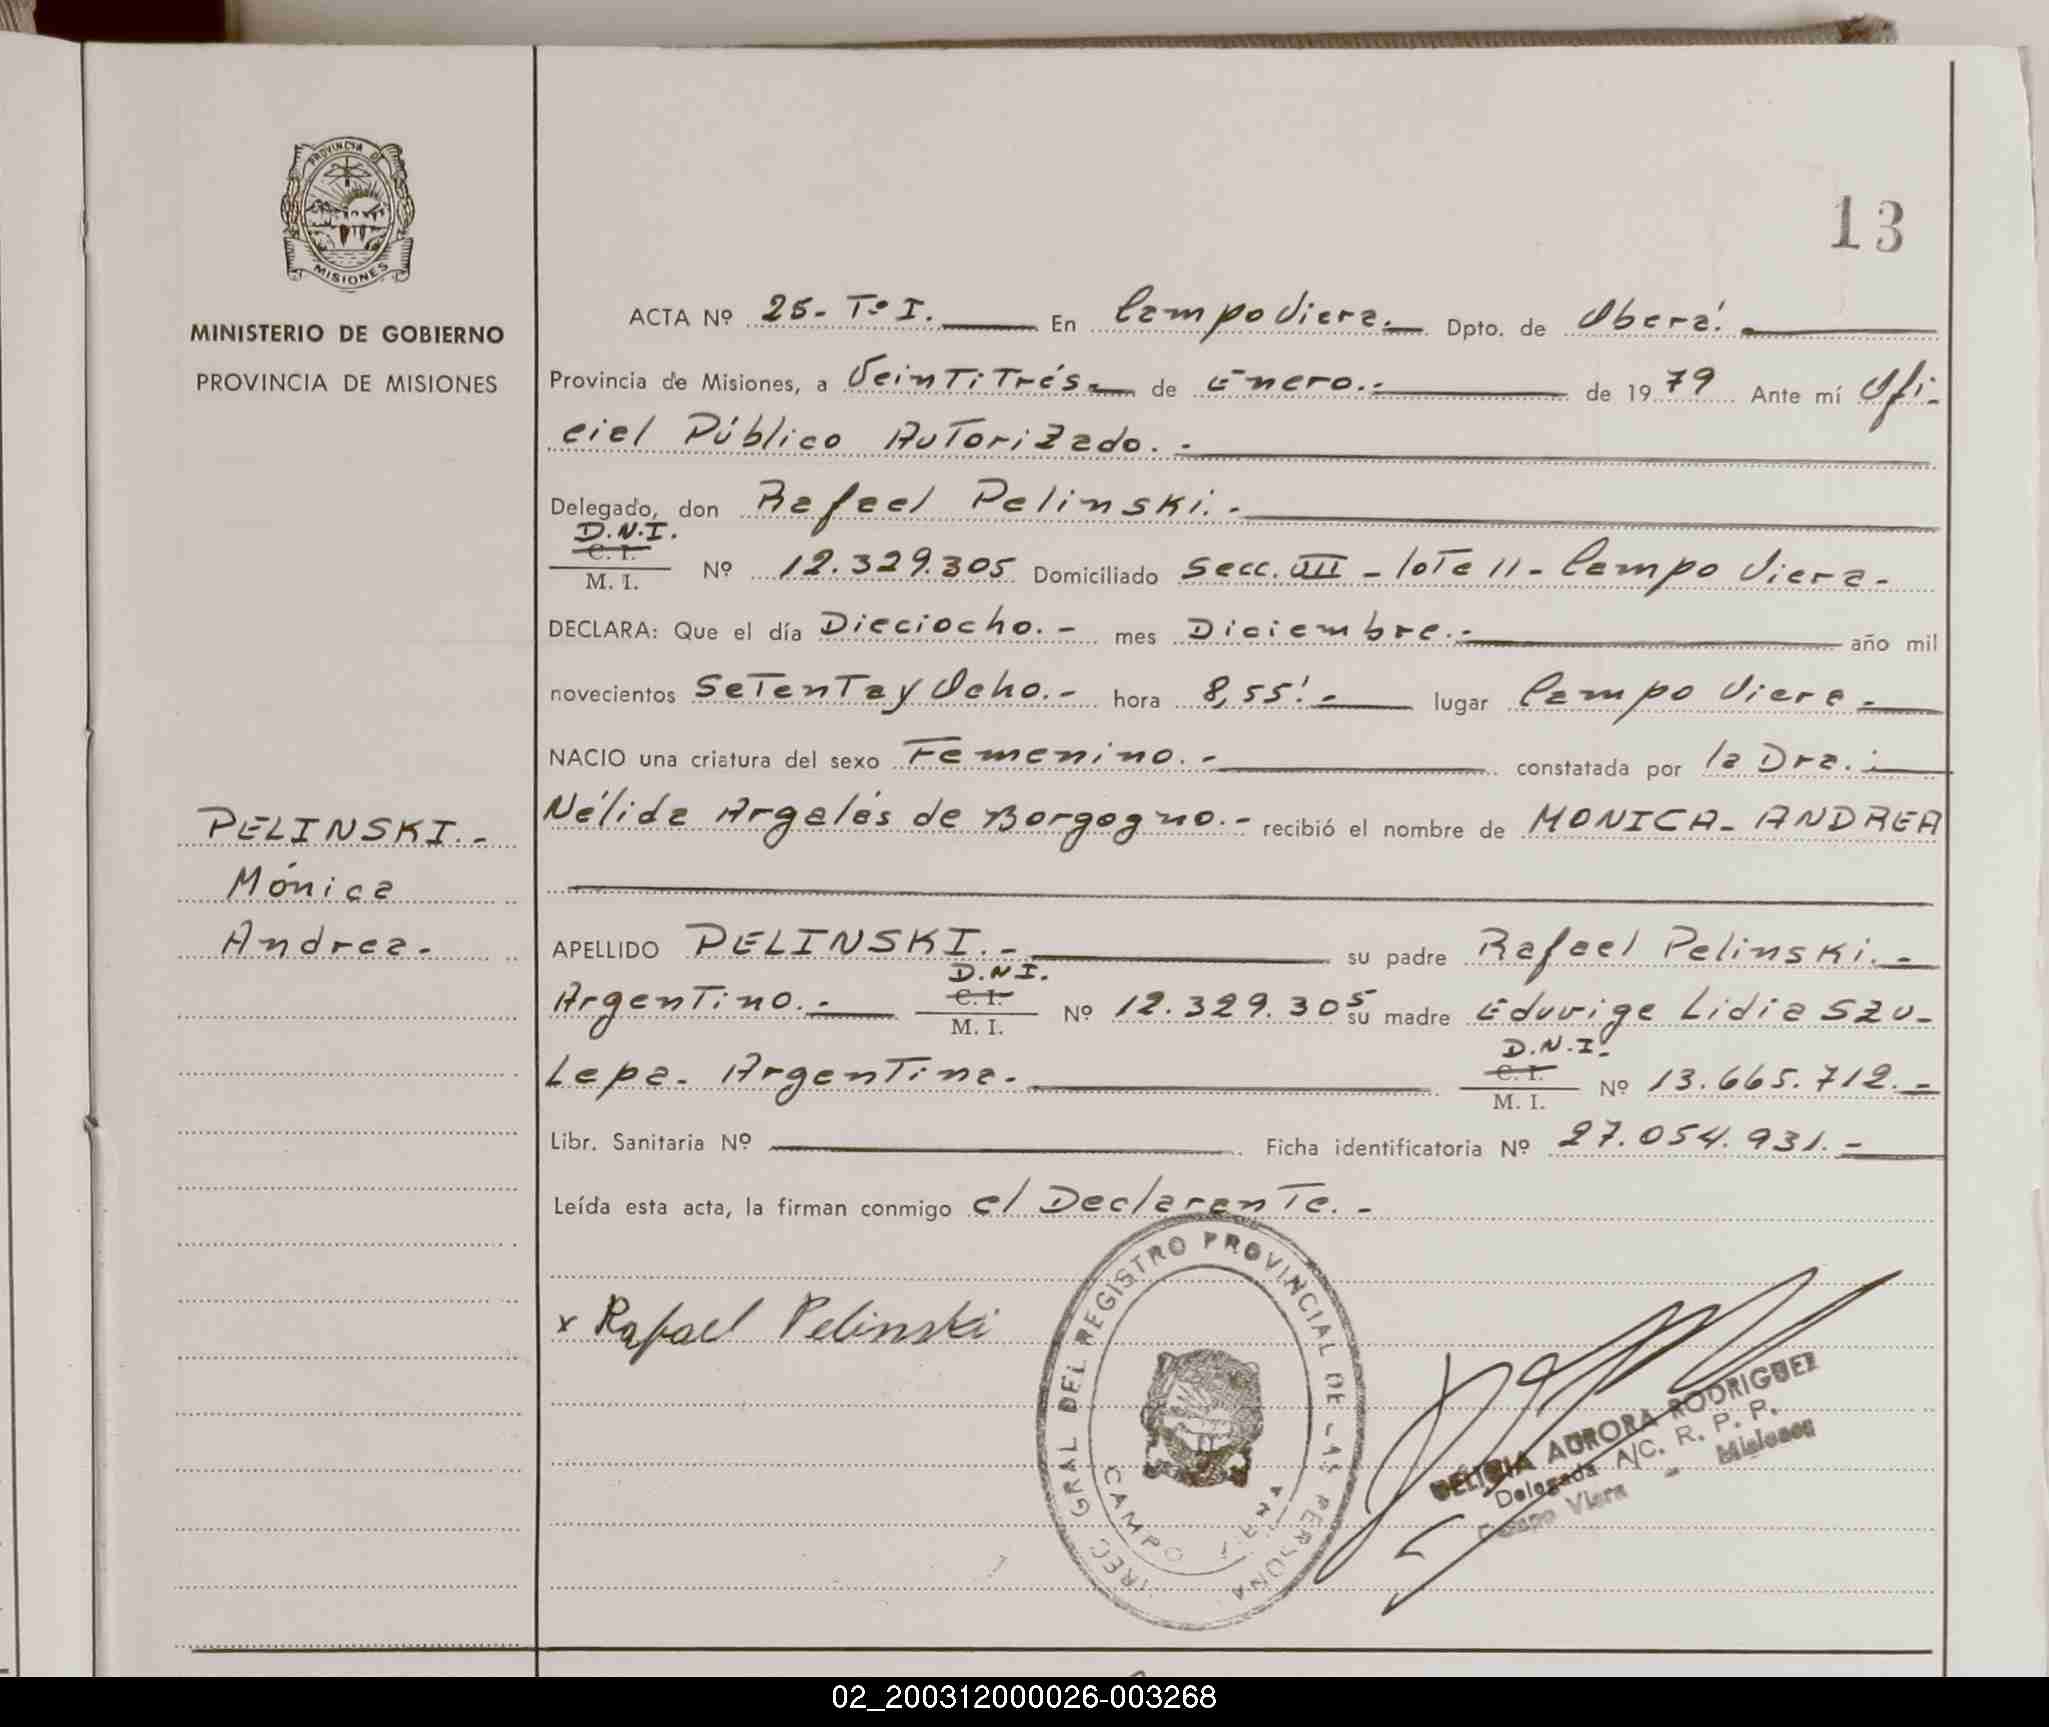 13
PROVINCIA DE
MISIONES
MINISTERIO DE GOBIERNO
PROVINCIA DE MISIONES
PELINSKI.-
Mónica
Andrea.
ACTA Nº 25- Tº I. En Campo Viera. Dpto. de Oberá.
Provincia de Misiones, a Veintitrés. de Enero.- de 19 79 Ante mí Ofi-
cial Público Autorizado.-
Delegado, don Rafael Pelinski.-
D.N.I.
C. I.
M. I. Nº 12.329.305 Domiciliado Secc. VIII - lote 11 - Campo Viera-
DECLARA: Que el día Dieciocho.- mes Diciembre.- año mil
novecientos Setenta y Ocho.- hora 8,55'.- lugar Campo Viera-
NACIO una criatura del sexo Femenino.- constatada por la Dra.:
Nélida Argalás de Borgogno.- recibió el nombre de MONICA- ANDREA
APELLIDO PELINSKI.- su padre Rafael Pelinski.-
D.N.I.
Argentino.- C. I. M. I. Nº 12.329.305 su madre Eduvige Lidia Szu-
D.N.I.
Lepa. Argentina. C. I. M. I. Nº 13.665.712.-
Libr. Sanitaria Nº Ficha identificatoria Nº 27.054.931.-
Leída esta acta, la firman conmigo el Declarante.-
x Rafael Pelinski
DIREC GRAL DEL REGISTRO PROVINCIAL DE LAS PERSONA
CAMPO VIERA
DELICIA AURORA RODRIGUEZ
Delegada A/C. R. P. P.
Campo Viera - Misiones
02_200312000026-003268